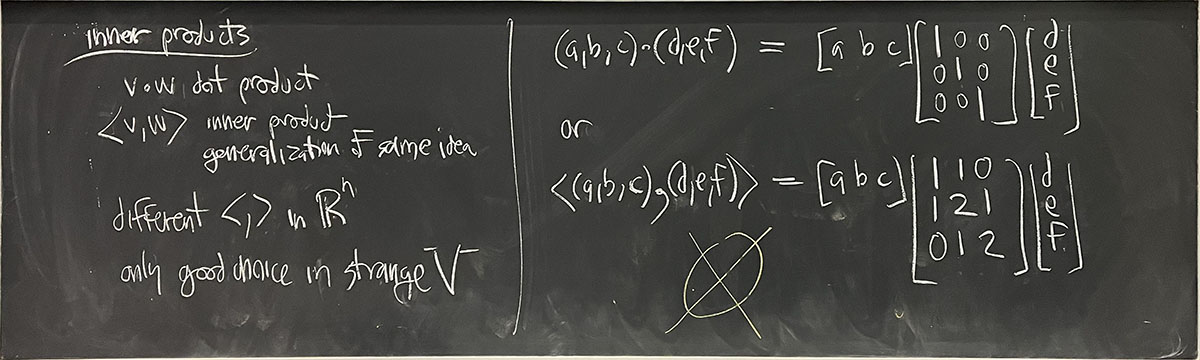 inner products
v•w dot product
<v,w> inner product
generalization of same idea
different <,> in ℝⁿ
only good choice in strange V
(a,b,c)•(d,e,f) = [a b c] [1 0 0; 0 1 0; 0 0 1] [d; e; f]
or
<(a,b,c),(d,e,f)> = [a b c] [1 1 0; 1 2 1; 0 1 2] [d; e; f]